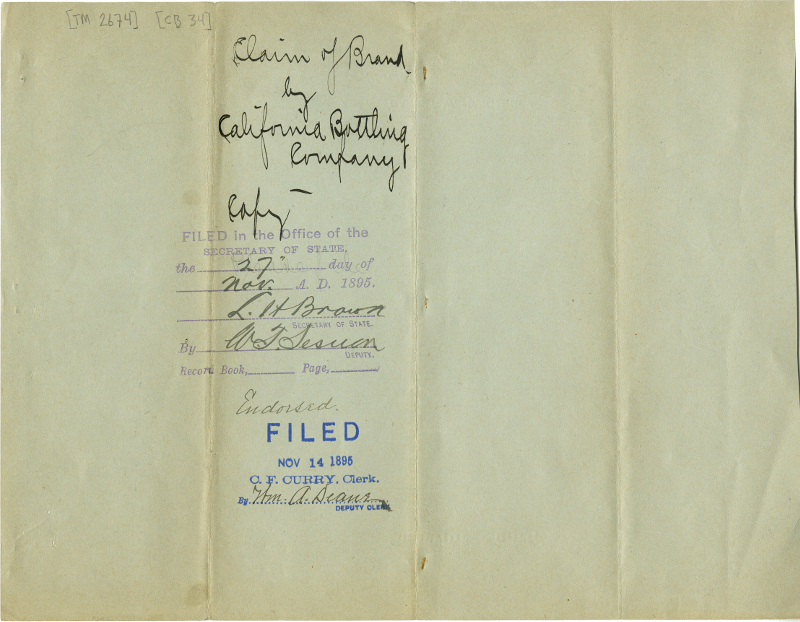 [TM 2674] [CB 34]
Claim of Brand
by
California Bottling
Company
Copy
FILED in the Office of the
SECRETARY OF STATE,
the 27" day of
Nov. A. D. 1895.
L. H. Brown
SECRETARY OF STATE.
By W. T. Sesnon
DEPUTY.
Record Book, Page,
Endorsed.
FILED
NOV 14 1895
C. F. CURRY, Clerk.
By Wm. A. Deane
DEPUTY CLERK